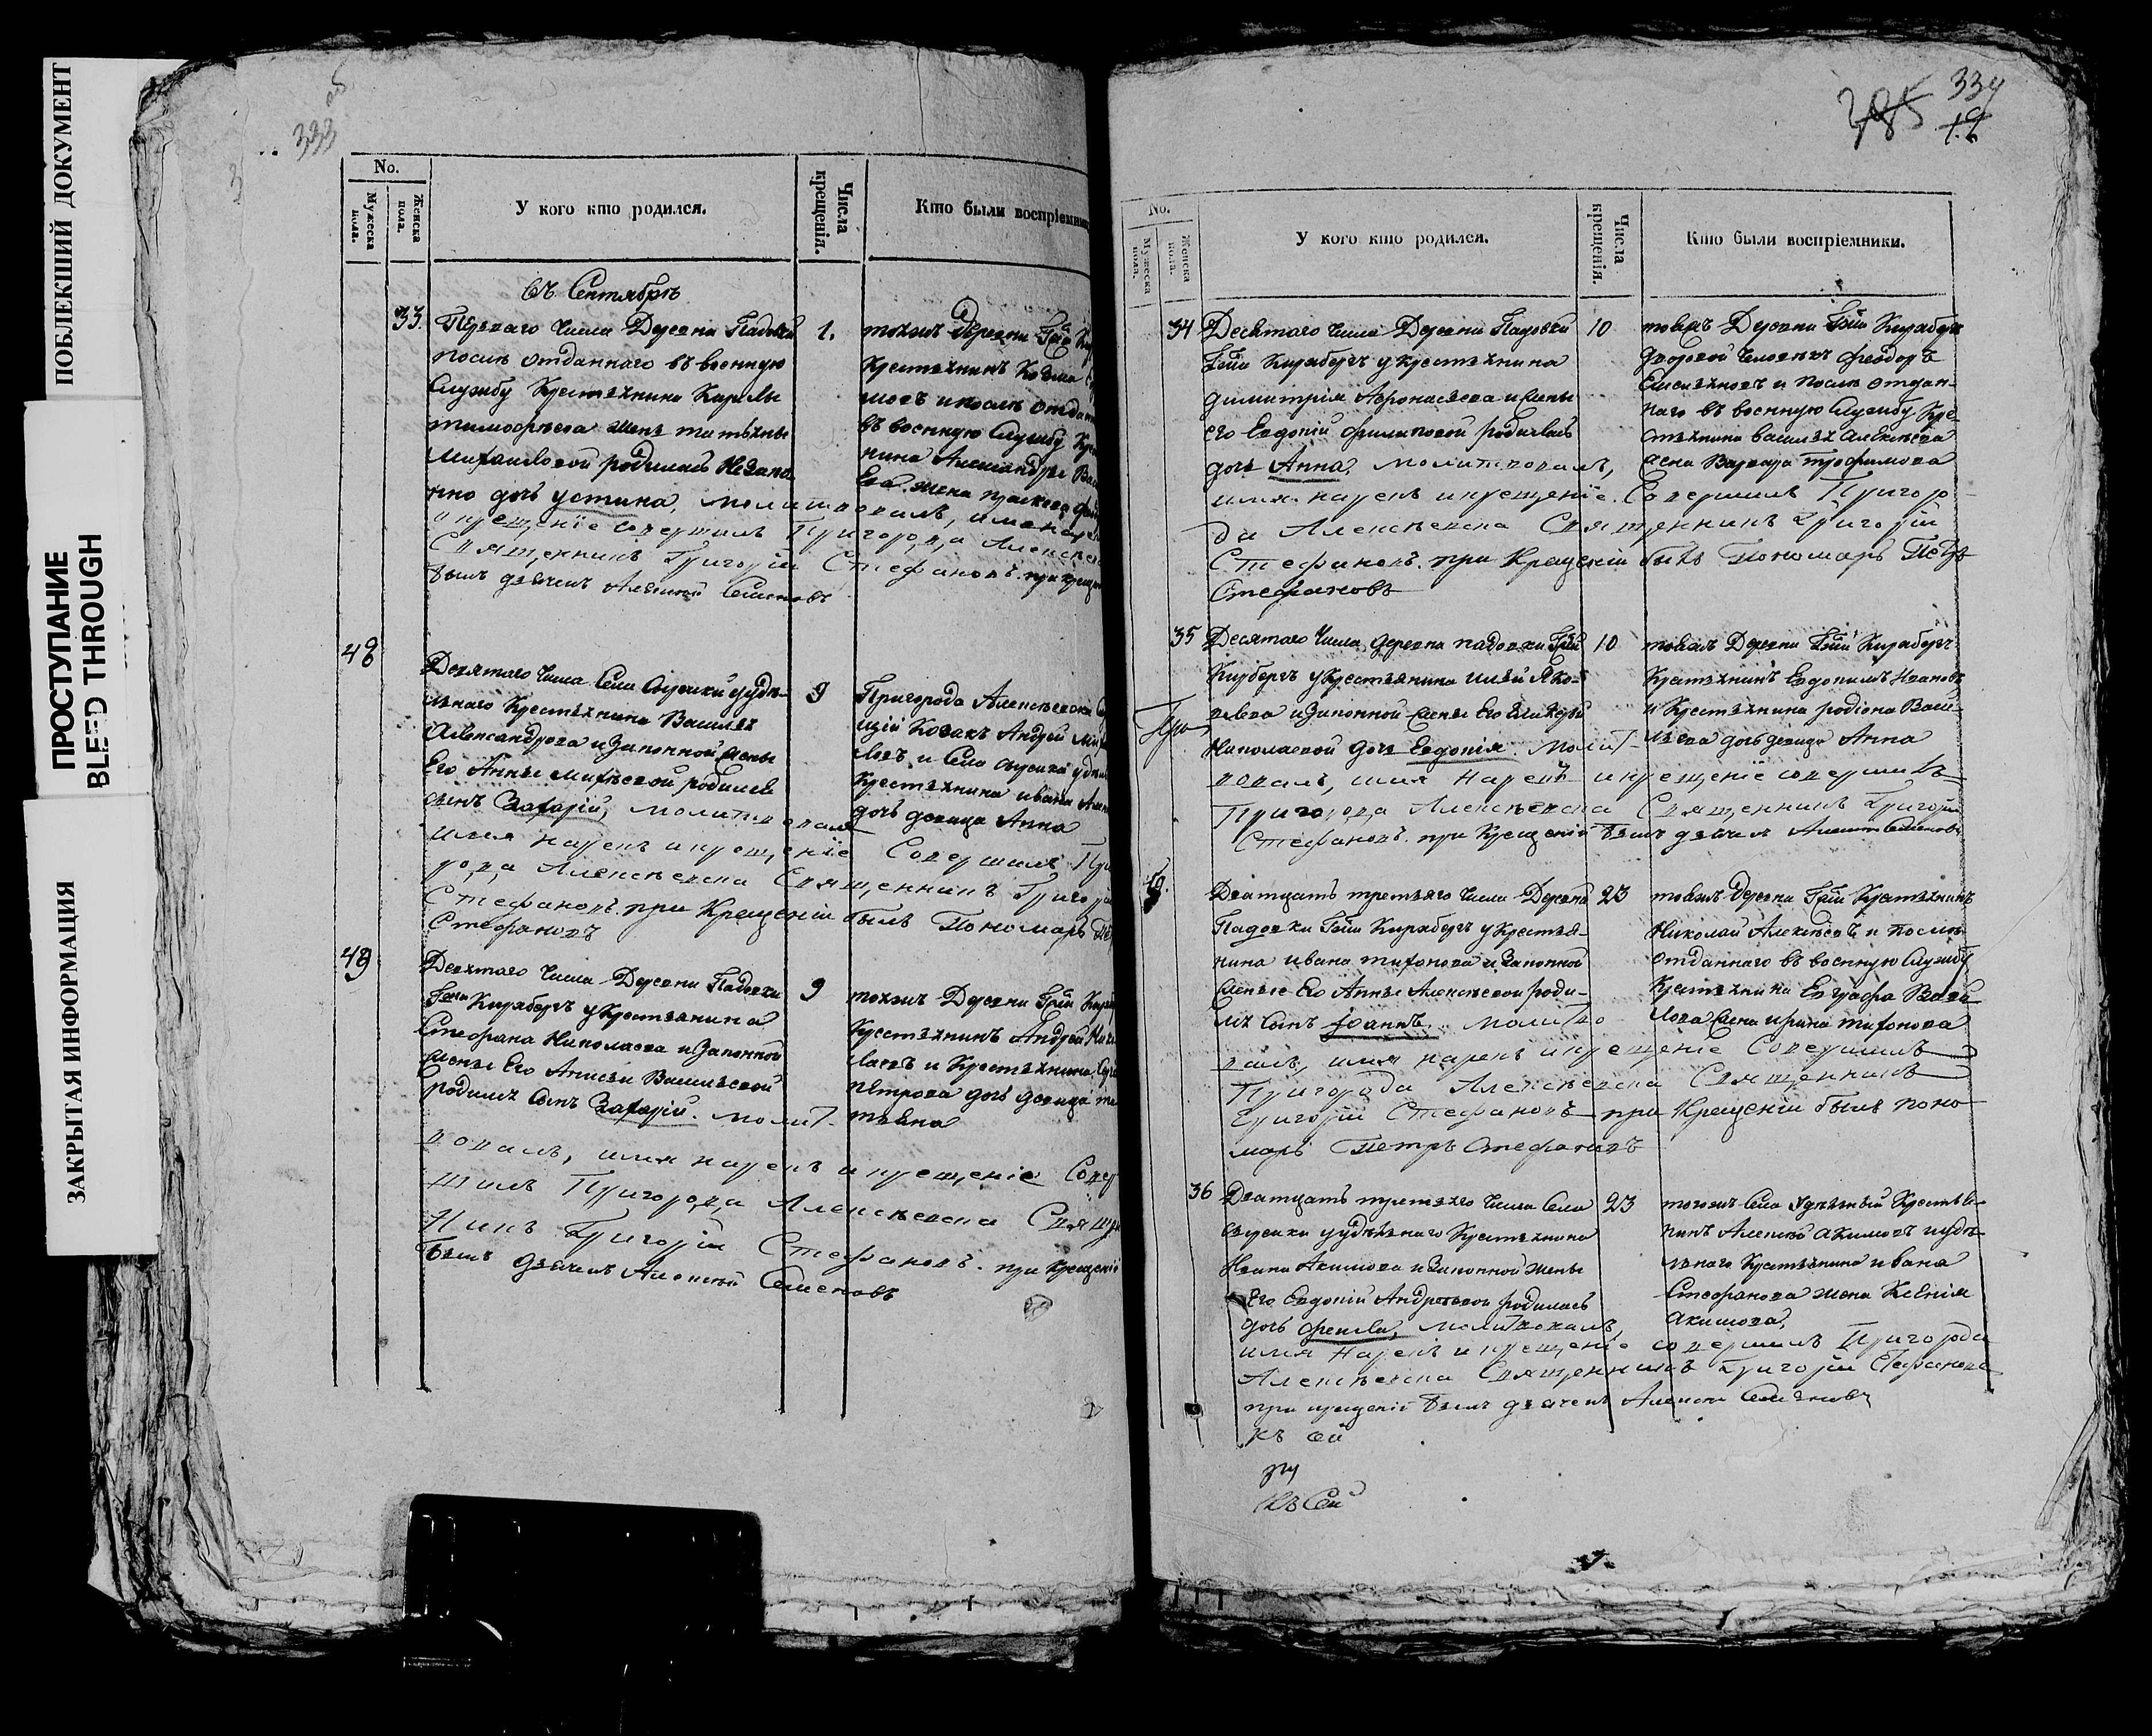 ПОБЛЕКШИЙ ДОКУМЕНТ
ПРОСТУПАНИЕ
BLED THROUGH
ЗАКРЫТАЯ ИНФОРМАЦИЯ
333
No.
Мужеска пола.
Женска пола.
У кого кто родился.
Числа крещенія.
Кто были воспріемники
въ Сентябрѣ
33. Перваго Числа Деревни Падовки
послѣ отданнаго въ военную
Службу Крестьянина Карпы
тимофѣева жены татьяны
Михаиловой родилась Незако
нно дочь устина, молитвовалъ, имя наре
и крещеніе совершилъ Пригорода Алексѣевск
Священникъ Григорій Стефановъ. при креще
былъ дьячекъ Алексѣй Семеновъ
1.
тоежъ деревни Гжи
Крестьянинъ Козма
мовъ и послѣ отдан
въ военную Службу Кре
нина Александра Вас
Ева жена праскова
48
Девятаго Числа Села Съезжей у удѣ
льнаго Крестьянина Василья
Александрова и законной жены
Его Анны Матвѣевой родился
сынъ Захарій, молитвовалъ
имя нарекъ и крещеніе Совершилъ При
рода Алексѣевска Священникъ Григорій
Стефановъ. при Крещеніи былъ Пономарь Пе
Стефановъ
9
Пригорода Алексѣевска
щій Козакъ Андрей Ми
ловъ и Села удѣль
Крестьянина ивана
дочь девица Анна
49
Девятаго Числа Деревни Падовки
Гжи Кирябергъ у Крестьянина
Стефана Николаева и Законной
жены Его Анисьи Васильевой
родился сынъ Захарій. Молит-
вовалъ, имя нарекъ и крещеніе Совер
шилъ Пригорода Алексѣевска Священ
никъ Григорій Стефановъ. при крещеніи
былъ дьячекъ Алексѣй Семеновъ
9
тоежъ Деревни Гжи
Крестьянинъ Андрей Ник
лаевъ и Крестьянина
Петрова дочь девица та
тьяна
334
No.
Мужеска пола.
Женска пола.
У кого кто родился.
Числа крещенія.
Кто были воспріемники.
34 Десятаго Числа Деревни Падовки
Гжи Кирябергъ у Крестьянина
Димитрія Афонасьева и жены
его Евдокіи филиповой родилась
дочь Анна. молитвовалъ,
имя нарекъ и крещеніе. Совершилъ Пригоро
да Алексѣевска Священникъ Григорій
Стефановъ. при Крещеніи былъ Пономарь Петръ
Стефановъ
10
тоежъ Деревни Гжи Кирябергъ
дворовой Человѣкъ феодоръ
Емельяновъ и послѣ отдан-
наго въ военную Службу Кре
стьянина василья Алексѣева
жена Варвара трофимова
35 Десятаго Числа деревни падовки Гжи
Кирбергъ у Крестьянина Ильи Яко-
влева и Законной жены Его Гликерьи
Николаевой дочь Евдокія. Молит-
вовалъ, имя нарекъ и крещеніе совершилъ
Пригорода Алексѣевска Священникъ Григорій
Стефановъ. при Крещеніи былъ дьячекъ Алексѣй Семеновъ
10
тоежъ Деревни Гжи Кирябергъ
Крестьянинъ Евдокимъ Ивановъ
и Крестьянина родіона Васи-
льева дочь девица Анна
Двадцать третьяго Числа Деревни
Падовки Гжи Кирябергъ у Крестья-
нина ивана тихонова и Законной
жены Его Анны Алексѣевой роди-
лся сынъ Іоаннъ. Молитво
валъ, имя нарекъ и крещеніе Совершилъ
Пригорода Алексѣевска Священникъ
Григорій Стефановъ при Крещеніи былъ поно
марь Петръ Стефановъ
23
тоежъ деревни Гжи Крестьянинъ
Николай Алексѣевъ и послѣ
отданнаго въ военную Службу
Крестьянина Евграфа
жена ирина тихонова
36 Двадцать третьяго Числа Села
съезжей у удѣльнаго Крестьянина
Ивана Акимова и Законной жены
Его Евдокіи Андреевой родилась
дочь фекла, молитвовалъ,
имя Нарекъ и крещеніе совершилъ Пригорода
Алексѣевска Священникъ Григорій Стефановъ
при крещеніи былъ дьячекъ Алексѣй Семеновъ
23
тогожъ Села Удѣльный Крестья-
нинъ Алексѣй Акимовъ и удѣ-
льнаго Крестьянина ивана
Стефанова жена Ксенія
Акимова,
къ сей
къ Сей